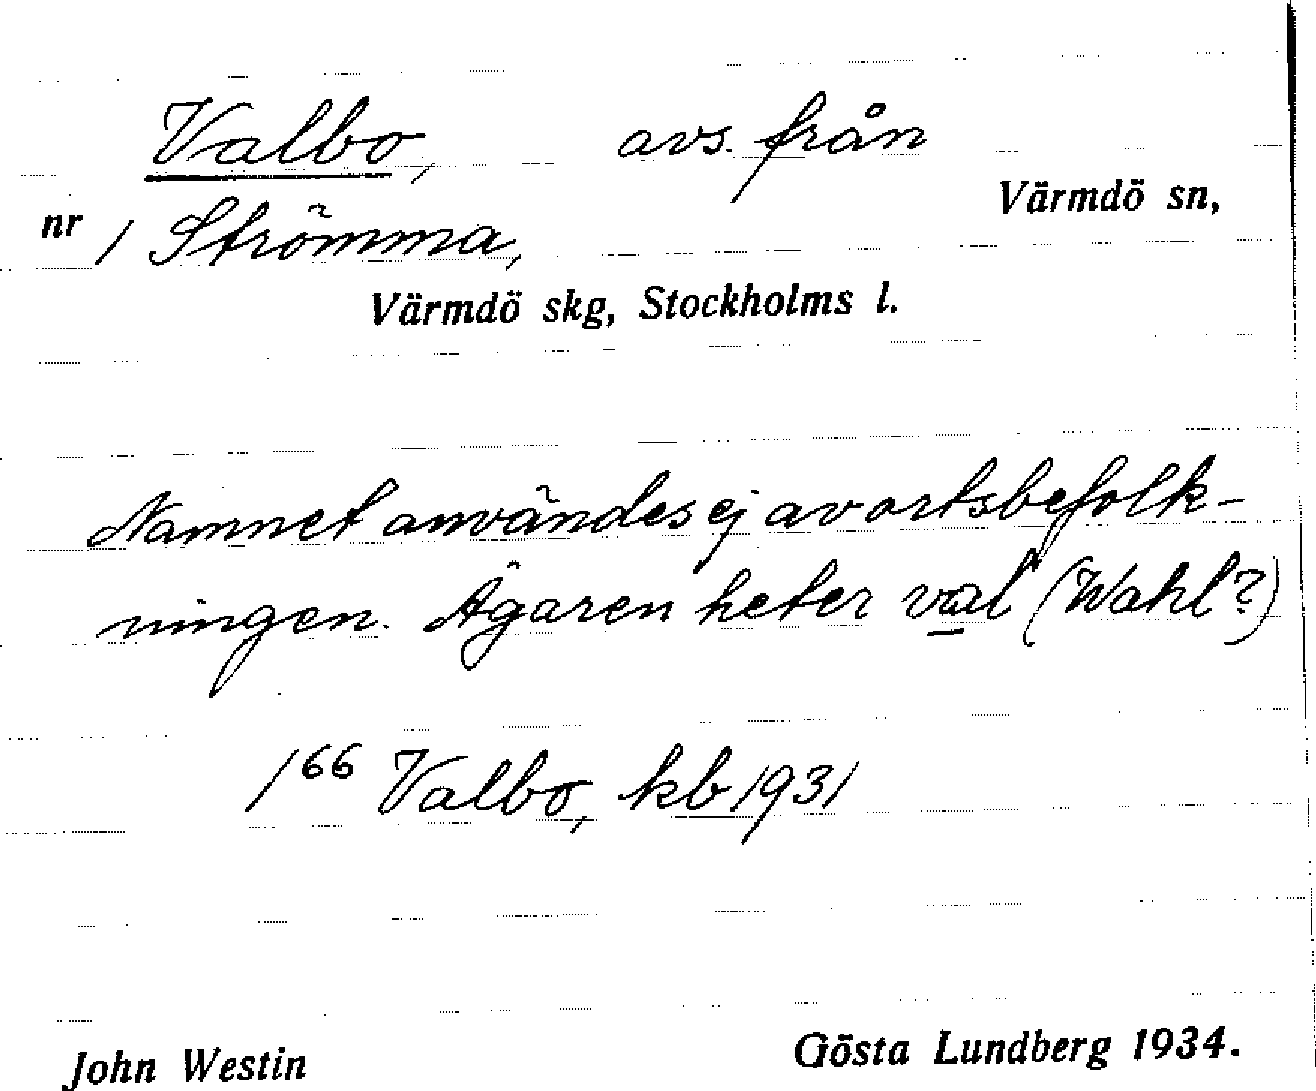 Valbo, avs. från
Värmdö sn,
nr 1 Strömma,
Värmdö skg, Stockholms l.
Namnet användes ej av ortsbefolk-
ningen. Ägaren heter val (Wahl?)
1 66 Valbo, kb 1931
John Westin
Gösta Lundberg 1934.